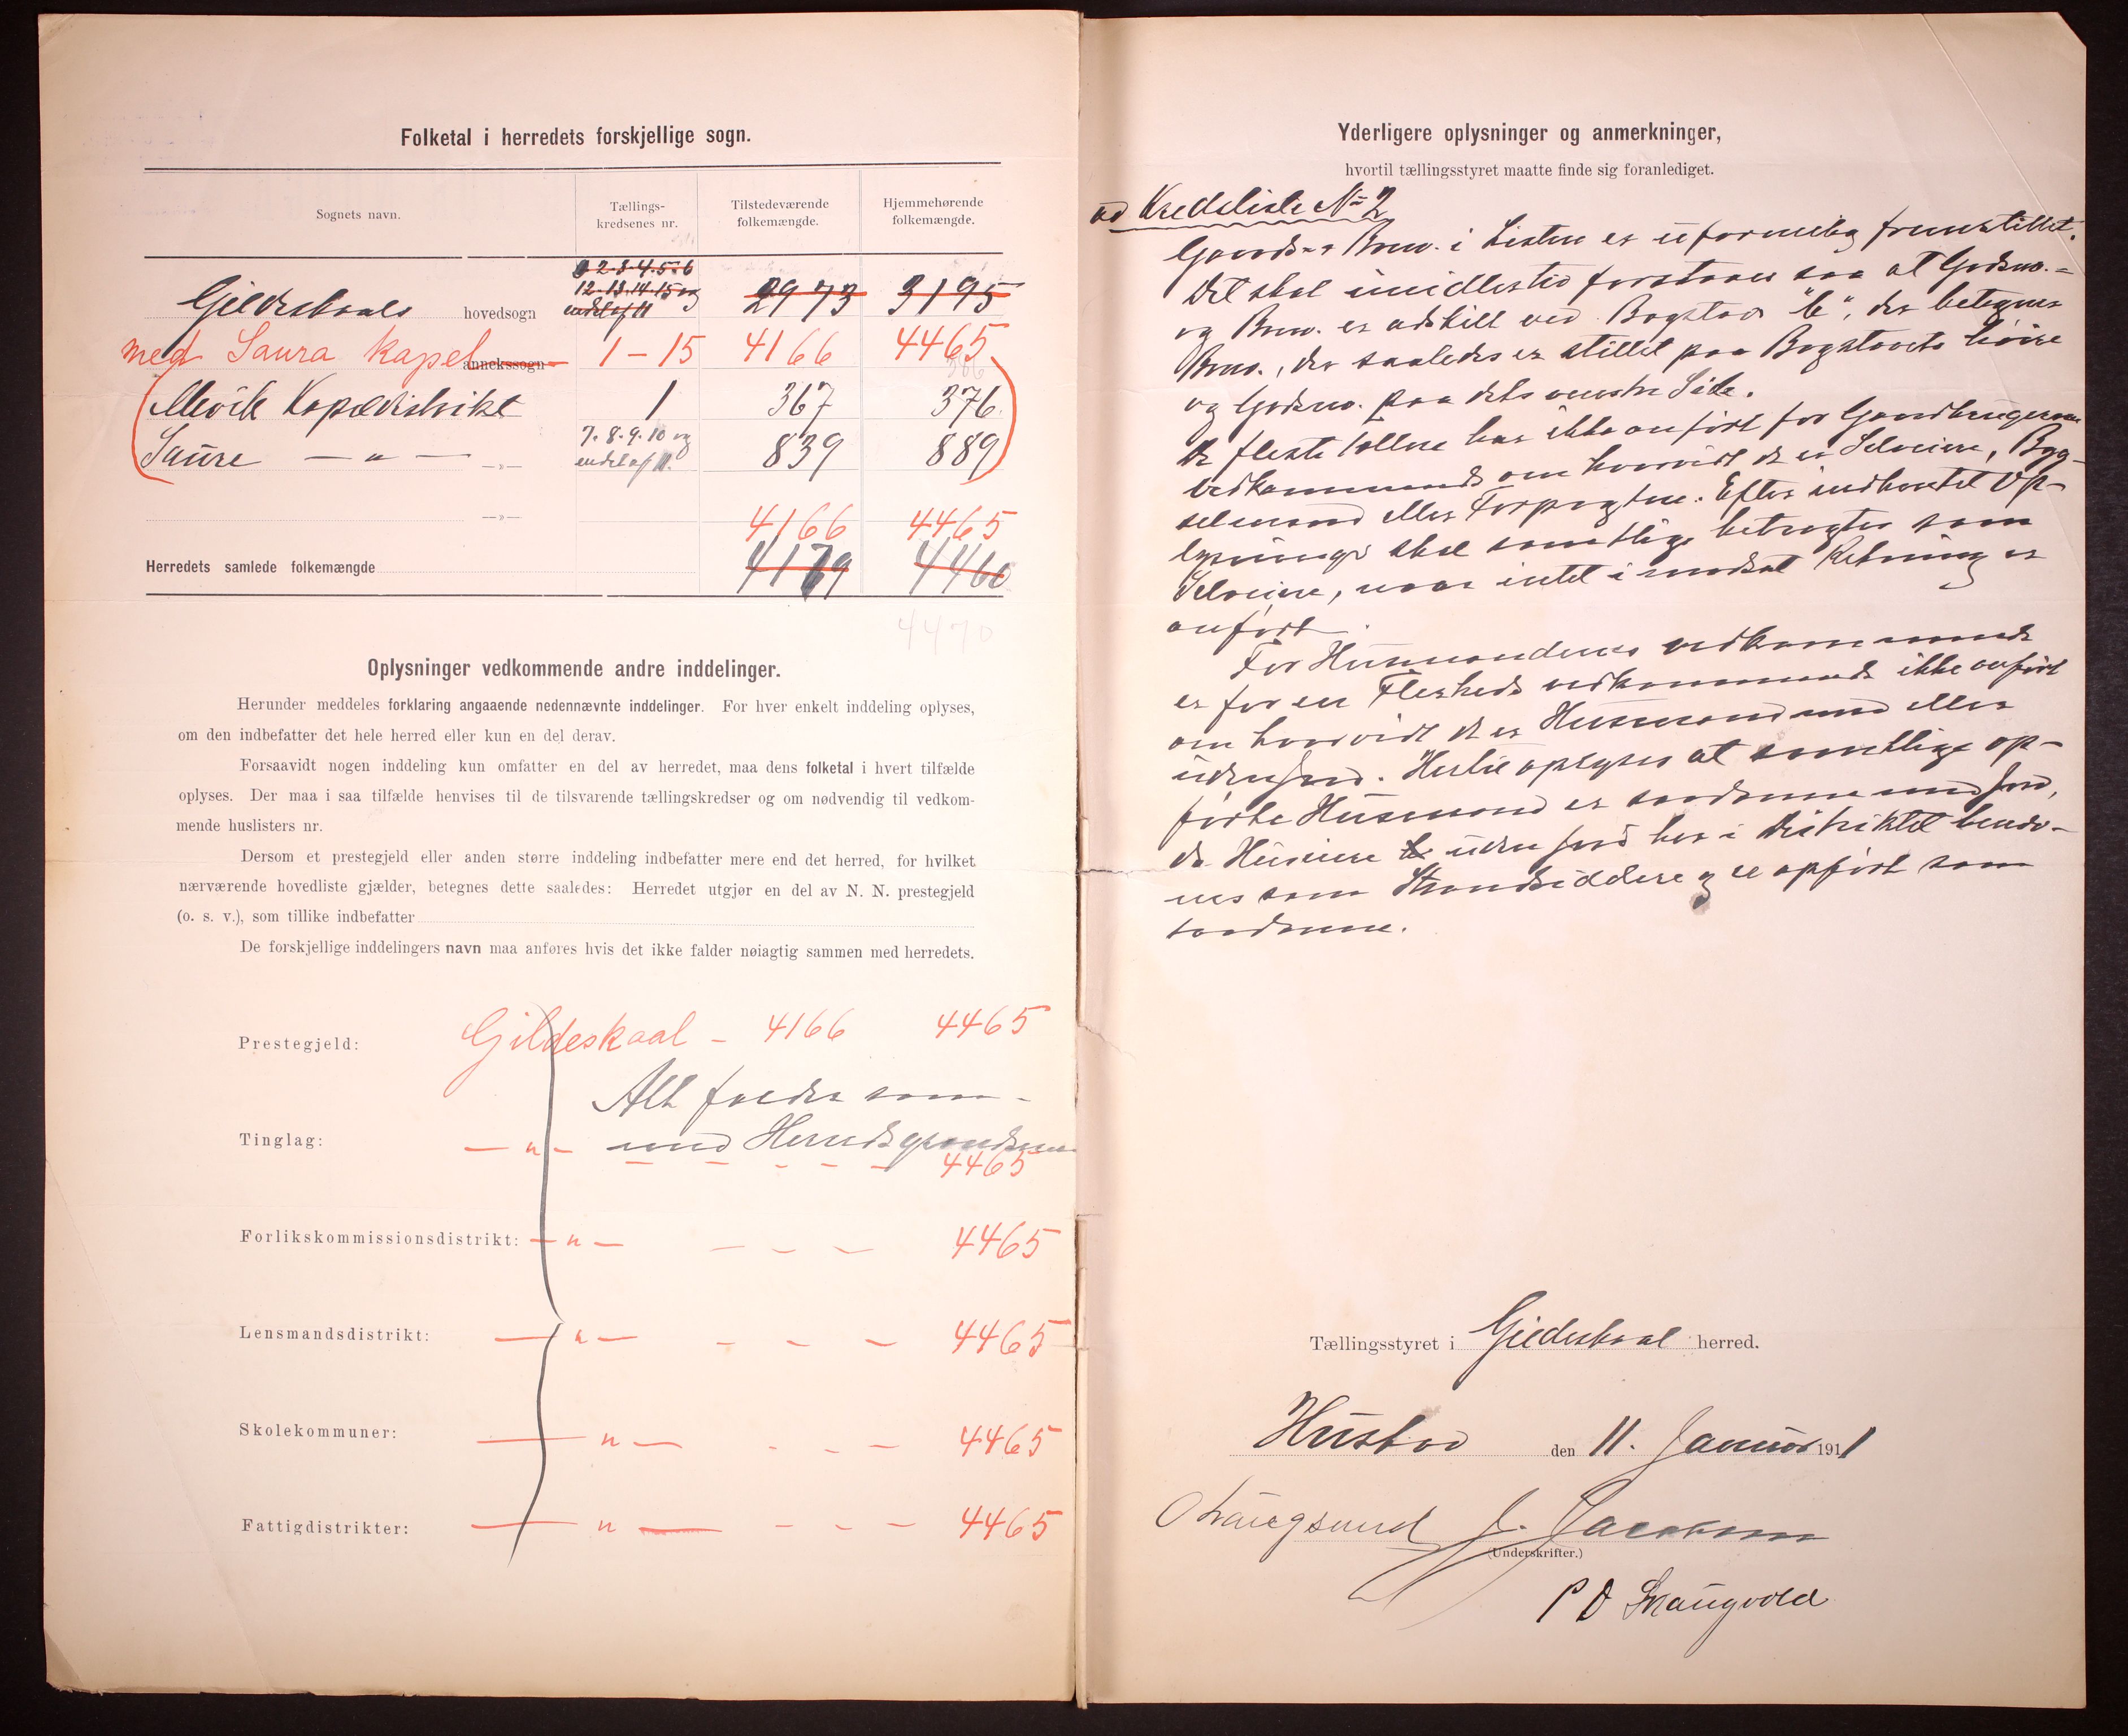 Folketal i herredets forskjellige sogn.
Sognets navn. Tællings-kredsenes nr. Tilstedeværende folkemængde. Hjemmehørende folkemængde.
2.3.4.5.6
12.13.14.15 og
Gildeskaals hovedsogn endel af 11 2973 3195
med Saura kapel annekssogn 1-15 4166 4465
Mevik Kapeldistrikt 1 367 376
7.8.9.10 og
Saure — " — —»— endel af 11. 839 889
—»— 4166 4465
Herredets samlede folkemængde 4179 4460
4470
Oplysninger vedkommende andre inddelinger.
Herunder meddeles forklaring angaaende nedennævnte inddelinger. For hver enkelt inddeling oplyses,
om den indbefatter det hele herred eller kun en del derav.
Forsaavidt nogen inddeling kun omfatter en del av herredet, maa dens folketal i hvert tilfælde
oplyses. Der maa i saa tilfælde henvises til de tilsvarende tællingskredser og om nødvendig til vedkom-
mende huslisters nr.
Dersom et prestegjeld eller anden større inddeling indbefatter mere end det herred, for hvilket
nærværende hovedliste gjælder, betegnes dette saaledes: Herredet utgjør en del av N. N. prestegjeld
(o. s. v.), som tillike indbefatter
De forskjellige inddelingers navn maa anføres hvis det ikke falder nøiagtig sammen med herredets.
Prestegjeld: Gildeskaal - 4166 4465
Alt falder sam-
Tinglag: — " — med Herredsgrændserne
4465
Forlikskommissionsdistrikt: — " — 4465
Lensmandsdistrikt: — " — 4465
Skolekommuner: — " — 4465
Fattigdistrikter: — " — 4465
Yderligere oplysninger og anmerkninger,
hvortil tællingsstyret maatte finde sig foranlediget.
ad Kredsliste No 2
Gaards- & Brno. i Listen er uformelig fremstillet.
Det skal imidlertid forstaaes saa at Gardsno.-
og Brno. er adskilt ved Bogstav "b", der betegner
Brno., der saaledes er stillet paa Bogstavets høire
og Gardsno. paa dets venstre Side.
De fleste tællere har ikke anført for Gaardbrugernes
vedkommende om hvorvidt de er Selveiere, Byg-
selmand eller Forpagtere. Efter indhentet Op-
lysninger skal samtlige betragtes som
Selveiere, naar intet i modsat Retning er
anført.
For Husmændenes vedkommende
er for en Flerheds vedkommende ikke anført
om hvorvidt det er Husmand med eller
uden jord. Hertil oplyses at samtlige op-
førte Husmænd er saadanne med jord,
da Huseiere uden jord her i Distriktet benæv-
nes som Strandsiddere og er opført som
saadanne.
Tællingsstyret i Gildeskaal herred.
Husbod den 11. Januar 1911
Langsund J. Jacobsen
(Underskrifter.)
P D Skaugvold